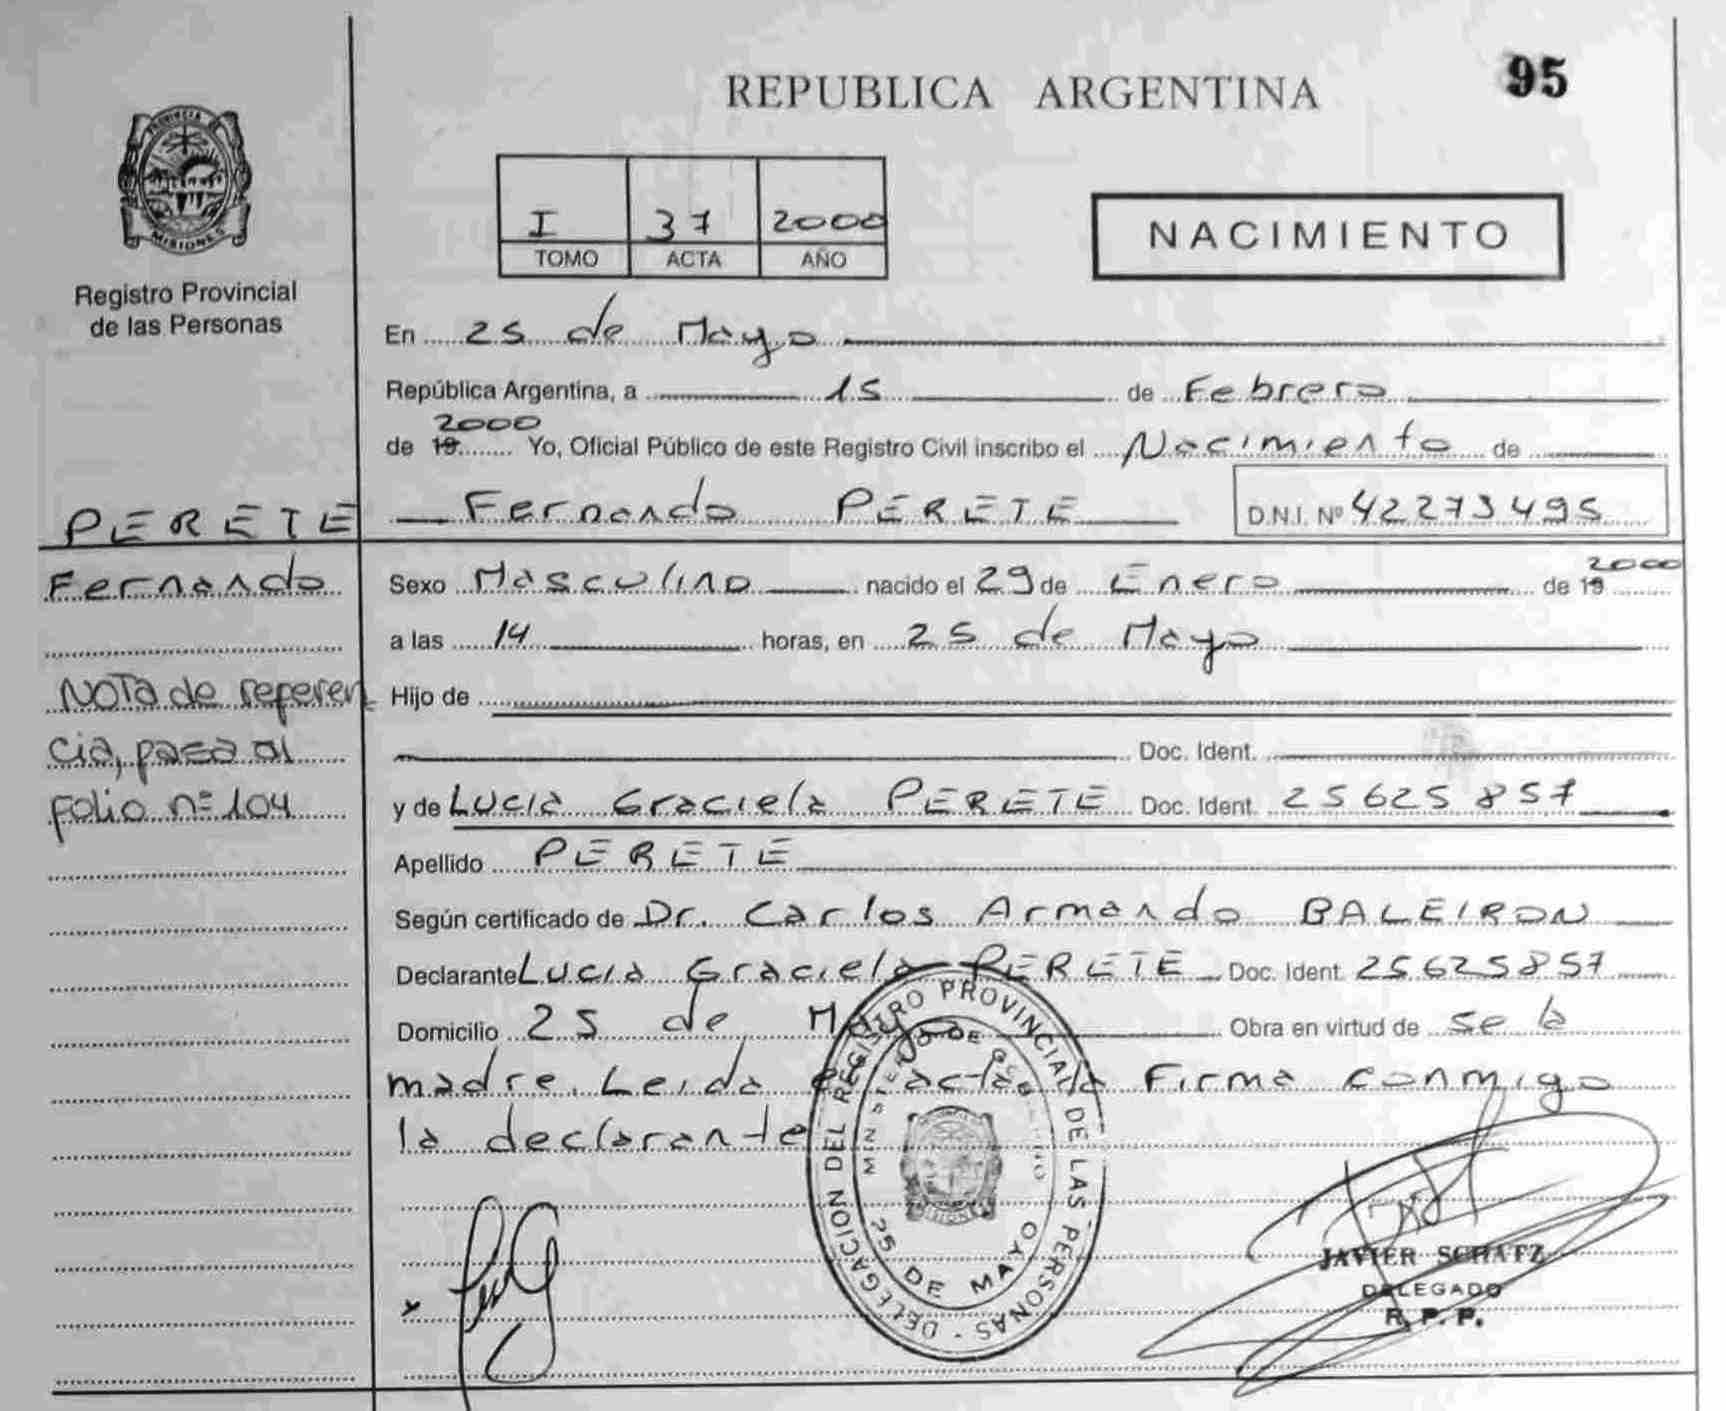 REPUBLICA ARGENTINA
95
PROVINCIA DE
MISIONES
Registro Provincial
de las Personas
I 37 2000
TOMO ACTA AÑO
NACIMIENTO
En 25 de Mayo
República Argentina, a 15 de Febrero
2000
de 19 Yo, Oficial Público de este Registro Civil inscribo el Nacimiento de
Fernando PERETE D.N.I. Nº 42273495
PERETE
Fernando
Nota de referen
cia, pasa al
folio nº 104
2000
Sexo Masculino nacido el 29 de Enero de 19
a las 14 horas, en 25 de Mayo
Hijo de
Doc. Ident.
y de Lucia Graciela PERETE Doc. Ident. 25625857
Apellido PERETE
Según certificado de Dr. Carlos Armando BALEIRON
Declarante Lucia Graciela PERETE Doc. Ident. 25625857
Domicilio 25 de Mayo Obra en virtud de se la
madre. Leida el acta la Firma conmigo
la declarante
DELEGACION DEL REGISTRO PROVINCIAL DE LAS PERSONAS -
MINISTERIO DE GOBIERNO
25 DE MAYO
MISIONES
x
JAVIER SCHATZ
DELEGADO
R. P. P.